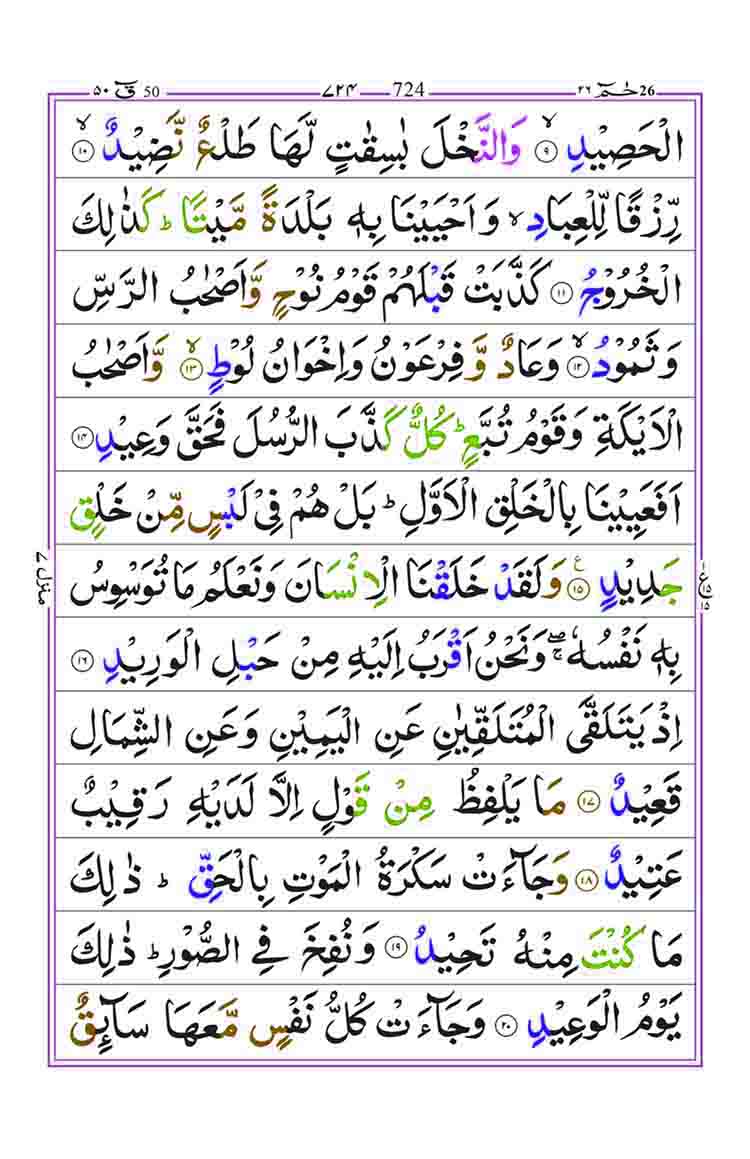 ٥٠ قٓ 50 ٧٢٤ 724 ٢٦ حٰمٓ 26
الْحَصِيْدِ ۙ‏﴿۹﴾ وَالنَّخْلَ بٰسِقٰتٍ لَّهَا طَلْعٌ نَّضِيْدٌ ۙ‏﴿۱۰﴾
رِّزْقًا لِّلْعِبَادِ ۙ وَاَحْيَيْنَا بِهٖ بَلْدَةً مَّيْتًا ؕ كَذٰلِكَ
الْخُرُوْجُ ﴿۱۱﴾ كَذَّبَتْ قَبْلَهُمْ قَوْمُ نُوْحٍ وَّاَصْحٰبُ الرَّسِّ
وَثَمُوْدُ ۙ‏﴿۱۲﴾ وَعَادٌ وَّفِرْعَوْنُ وَاِخْوَانُ لُوْطٍ ۙ‏﴿۱۳﴾ وَّاَصْحٰبُ
الْاَيْكَةِ وَقَوْمُ تُبَّعٍ ؕ كُلٌّ كَذَّبَ الرُّسُلَ فَحَقَّ وَعِيْدِ ﴿۱۴﴾
اَفَعَيِيْنَا بِالْخَلْقِ الْاَوَّلِ ؕ بَلْ هُمْ فِىْ لَبْسٍ مِّنْ خَلْقٍ
جَدِيْدٍ ﴿۱۵﴾ وَلَقَدْ خَلَقْنَا الْاِنْسَانَ وَنَعْلَمُ مَا تُوَسْوِسُ
بِهٖ نَفْسُهٗ ۖۚ وَنَحْنُ اَقْرَبُ اِلَيْهِ مِنْ حَبْلِ الْوَرِيْدِ ﴿۱۶﴾
اِذْ يَتَلَقَّى الْمُتَلَقِّيٰنِ عَنِ الْيَمِيْنِ وَعَنِ الشِّمَالِ
قَعِيْدٌ ﴿۱۷﴾ مَا يَلْفِظُ مِنْ قَوْلٍ اِلَّا لَدَيْهِ رَقِيْبٌ
عَتِيْدٌ ﴿۱۸﴾ وَجَآءَتْ سَكْرَةُ الْمَوْتِ بِالْحَقِّ ؕ ذٰلِكَ
مَا كُنْتَ مِنْهُ تَحِيْدُ ﴿۱۹﴾ وَنُفِخَ فِى الصُّوْرِ ؕ ذٰلِكَ
يَوْمُ الْوَعِيْدِ ﴿۲۰﴾ وَجَآءَتْ كُلُّ نَفْسٍ مَّعَهَا سَآٮِٕقٌ
منزل ٧